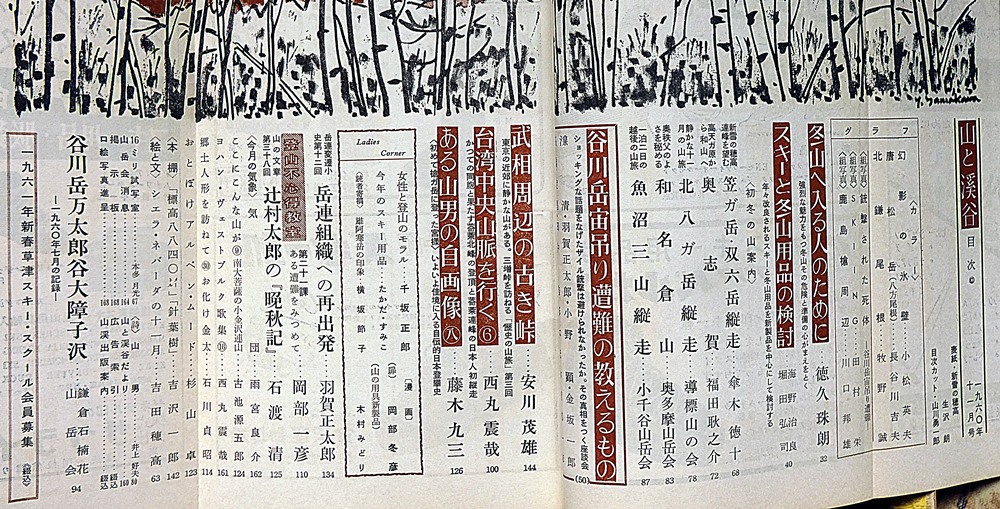 山と溪谷 目次◎
一九六〇年
十一月号
表紙・新雪の穂高
生沢朗
目次カット・山川勇一郎
グラフ
〈カラー〉
幻影の氷壁 小松英夫
唐松岳〈八方尾根〉 長谷川英夫
北鎌尾根 牧野誠
〈組写真〉銃撃された死体―谷川岳宙吊り遭難―
〈組写真〉SKIING 田村邦雄
〈組写真〉鹿島槍周辺 川口邦雄
冬山へ入る人のために 徳久珠朗 32
強烈な魅力をもつ冬山その危険と準備の心がまえをとく
スキーと冬山用品の検討 海野治良 堀田弘司 40
年々改良されるスキーと冬山用品を新製品を中心にして検討する
〈初冬の山案内〉
新雪の穂高連峰を望む 笠ガ岳双六岳縦走 傘木徳十 68
高天ガ原から和山へ 奥志賀 福田耿之介 72
静かな十一月の山旅 北八ガ岳縦走 導標山の会 78
奥秩父のよさを秘める 和名倉山 奥多摩山岳会 83
一泊二日の越後の山旅 魚沼三山縦走 小千谷山岳会 87
谷川岳宙吊り遭難の教えるもの (50)
ショッキングな話題をなげたザイル銃撃は避けられなかったか。その真相をつく座談会
羽賀正太郎 小野 顕 金坂一郎
武相周辺の古き峠 安川茂雄 144
東京の近郊に静かな山がある。三増峠を訪ねる「歴史の山旅」第三回
台湾中央山脈を行く⑥ 西丸震哉 100
ある山男の自画像(八) 藤木九三 126
Ladies Corner
女性と登山のモラル…千坂正郎
今年のスキー用品…たかだ・すみこ
〈読者寄稿〉雌阿寒岳の印象…横坂節子
〔漫画〕 岡部冬彦
〔山の用具新製品〕 木村みどり
岳連変遷小史第十三回 岳連組織への再出発 羽賀正太郎 134
登山不心得教室 第二十課 ある遭難をみつめて… 岡部一彦 110
山の文章第二十八回 辻村太郎の『晩秋記』 石渡清 125
〈今月の気象〉気団 雨宮良介 162
ここにこんな山が⑨南大菩薩の小金沢連山 古池源五郎 124
ヨハン・ヴェストブルク歌集⑩ 西丸震哉 161
郷土人形を訪ねて㉚お化け金太 石川貞昭 114
おとぼけアルペン・ムード 杉山卓 123
〈本棚〉「標高八八四〇㍍」「針葉樹」 吉沢一郎 142
〈絵と文〉シェラ・ネバーダの十一月 吉田穂高 63
16ミリ試写室 本多月光 67
〈詩〉山男 井上好夫 80
山岳会消息 164
山と谷だより 160
掲示板 165
広告索引 168
口絵写真進呈 163
山溪出版案内 綴込
谷川岳万太郎谷大障子沢 鎌倉石楠花山岳会 94
―一九六〇年七月の記録―
一九六一年新春草津スキー・スクール会員募集〈綴込〉